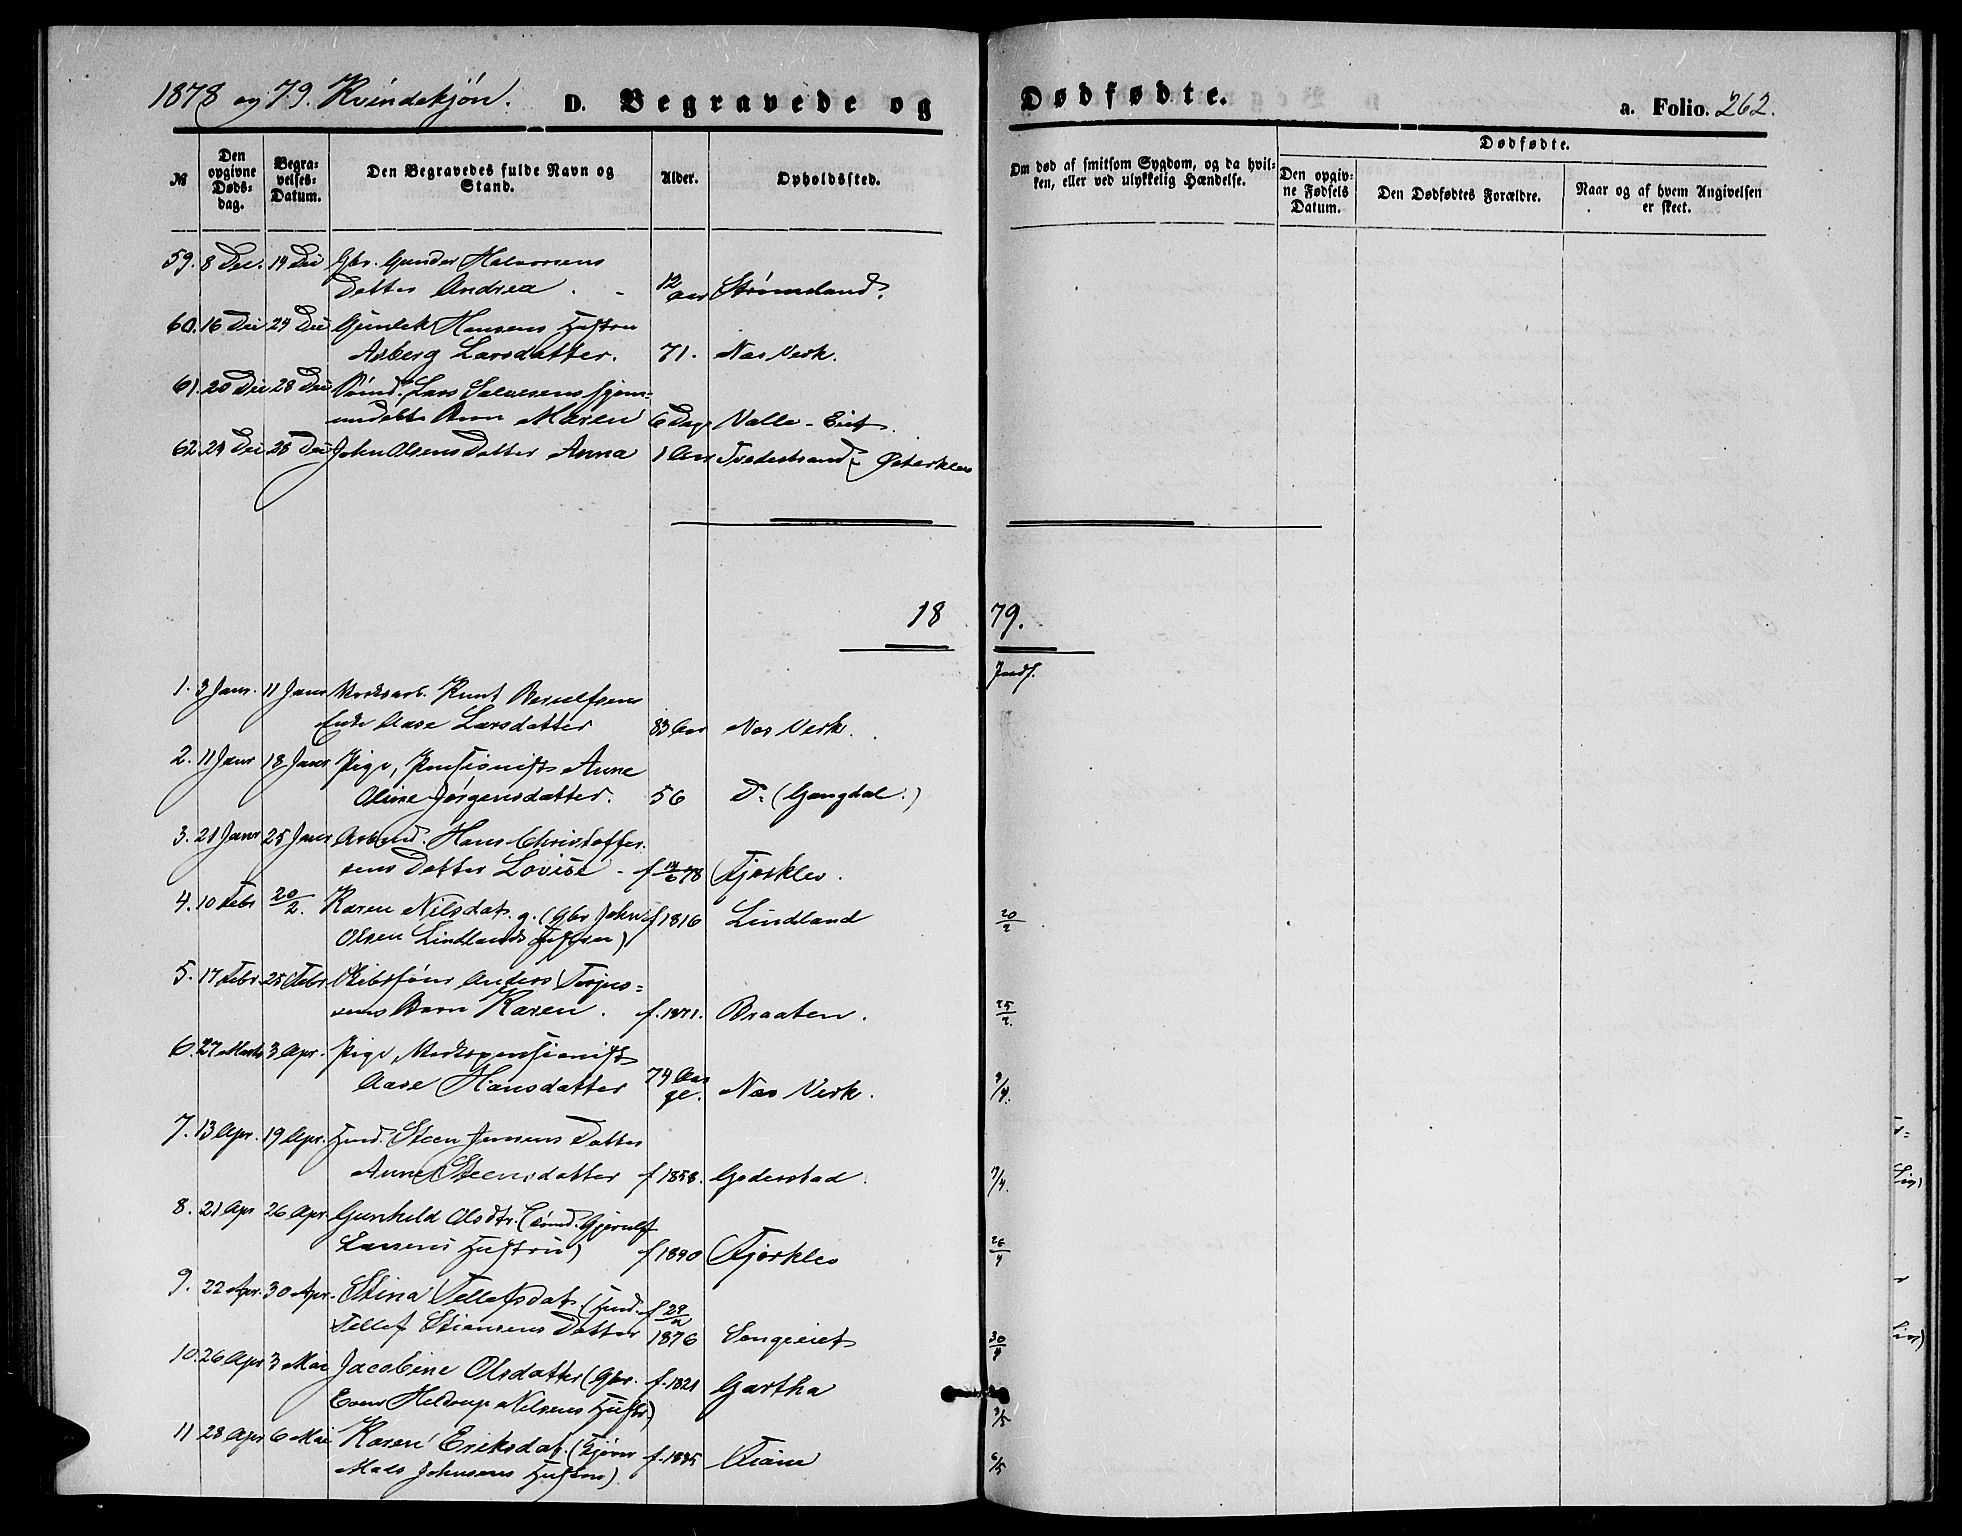 1878 og 79. Kvindekjøn. D. Begravede og Dødfødte. a. Folio. 262.
№
Den opgivne Døds-dag.
Begra-velses-Datum.
Den Begravedes fulde Navn og Stand.
Alder.
Opholdssted.
Om død af smitsom Sygdom, og da hvil-ken, eller ved ulykkelig Hændelse.
Dødfødte.
Den opgiv-ne Fødsels Datum.
Den Dødfødtes Forældre.
Naar og af hvem Angivelsen er skeet.
59. 8 Dec. 14 Dec Gbr. Gunder Halvorsens
Datter Andrea 12 Aar Strømeland.
60. 16 Dec 24 Dec Gunlek Hansens Hustru
Asberg Larsdatter. 71. Nas Verk.
61. 20 Dec 28 Dec Lars Salvesens hjem=
medøbte Barn Maren 6 Dage Valle-Eiet.
62. 24 Dec 28 Dec John Olsens Datter Anna 1 Aar Tvedestrand Østerklev
1879.
1. 3 Janr. 11 Janr Verksarb. Knut Beruulfsens
Enke Aase Larsdatter 83 Aar Nas Verk.
2. 11 Janr 18 Janr Pige, Pensionist Anne
Oline Jørgensdatter. 56 Do (Gangdal.)
3. 21 Janr 25 Janr Arbmd. Hans Christoffer-
sens Datter Lovise f 78 Fjærklev.
4. 10 Febr 20/2. Karen Nilsdat. g. (Gbr John
Olsen Lindlands Hustru) f 1816 Lindland 20/2
5. 17 Febr. 25 Febr. Anders Terjes=
sens Barn Karen. f. 1871. Braaten. 25/2.
6. 27 Marts 3 Apr. Pige, Verkspensionist
Aase Hansdatter 74 Aar gl. Nas Verk. 3/4.
7. 13 Apr. 19 Apr. Husd. Steen Jensens Datter
Anne Steensdatter f 1858. Goderstad.
8. 21 Apr 26 Apr. Gunhild Olsdtr. Gjerulf
Larsens Hustru) Fjærklev 26/4
9. 22 Apr. 30 Apr. Stina Tellefsdat. (Husd.
Tellef Stiansens Datter 1876 Songeeiet 30/4
10. 26 Apr 3 Mai Jacobine Olsdatter (Gbr.
Even Heldrup Nilsens Hustr.) f. 1821 Gartha 3/5
11 28 Apr 6 Mai Karen Eriksdat.
Mads Johnsens Hustru) 6/5